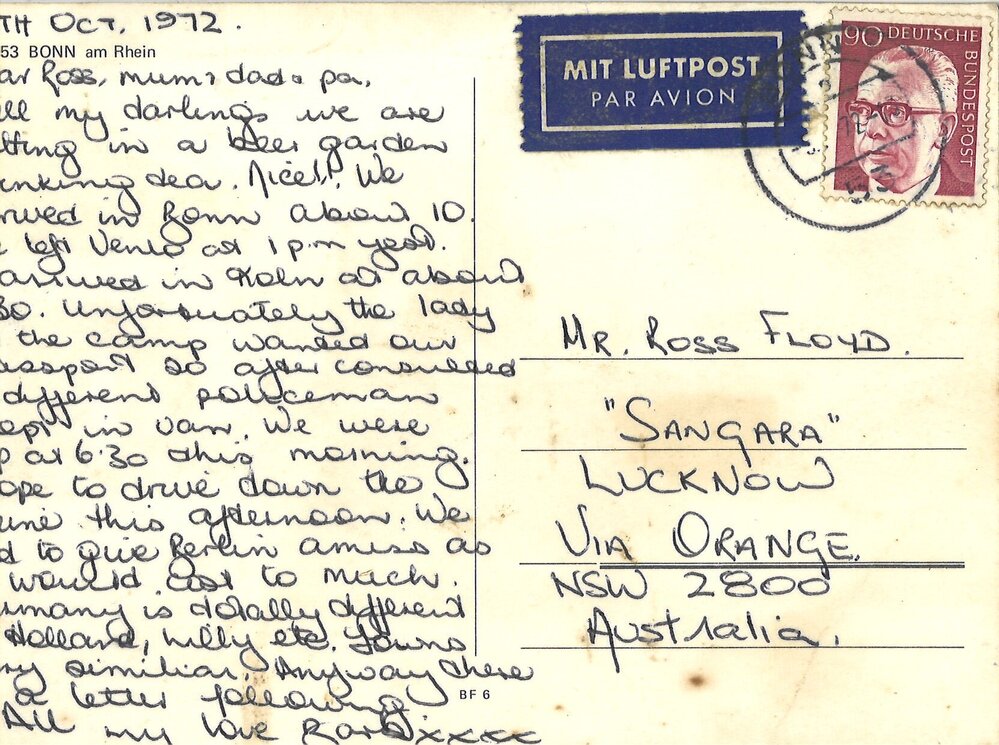 TH OCT, 1972.
53 BONN am Rhein
ar Ross, mum, dad & pa,
ll my darlings we are
tting in a beer garden
nking tea. Nice!! We
rived in Bonn about 10.
e left Venlo at 1 p.m yest.
arrived in Koln at about
30. Unfortunately the lady
the camp wanted our
assport so after consulted
different policeman
ept in van. We were
p at 6.30 this morning.
ope to drive down the
ine this afternoon. We
d to give Berlin a miss as
would cost to much.
rmany is totally different
Holland, hilly etc. Towns
ry similiar. Anyway there
a letter following
All my love xxxx
BF 6
MIT LUFTPOST
PAR AVION
90 DEUTSCHE
BUNDESPOST
53
MR. ROSS FLOYD.
"SANGARA"
LUCKNOW
VIA ORANGE.
NSW 2800
Australia.